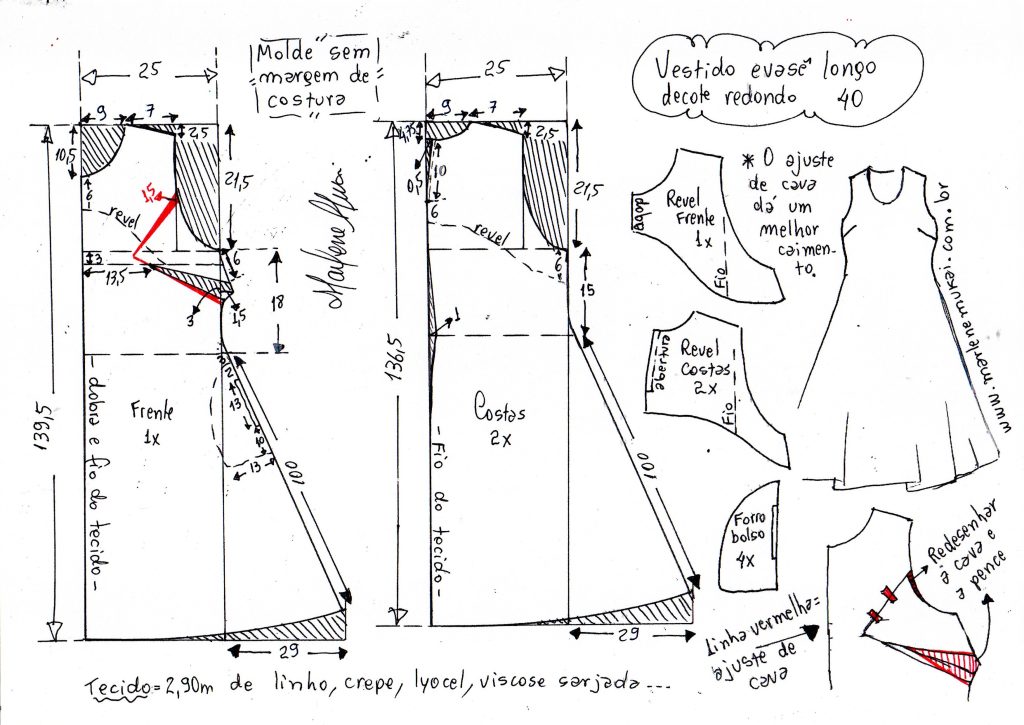 Molde sem
margem de
costura
Vestido evasê longo
decote redondo 40
25
9
7
10,5
2,5
21,5
1,5
6
revel
3
13,5
6
3
1,5
18
139,5
2
13
13
100
Frente
1x
- dobra e fio do tecido -
29
25
9
7
2,5
0,5
10
6
21,5
revel
6
15
1
136,5
Costas
2x
- Fio do tecido -
100
29
dobra
Revel
Frente
1x
Fio
* O ajuste
de cava
dá um
melhor
caimen-
to.
abertura
Revel
Costas
2x
Fio
www.marlenemukai.com.br
Forro
bolso
4x
Linha vermelha=
ajuste de
cava
Redesenhar
a cava e
a pence
Tecido = 2,90m de linho, crepe, lyocel, viscose sarjada...